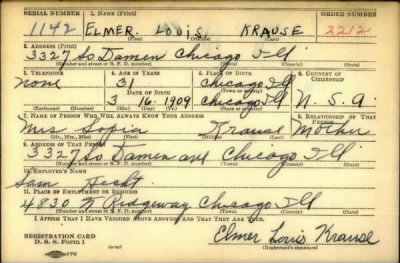 SERIAL NUMBER 1. NAME (Print) ORDER NUMBER
1142 ELMER. LOUIS. KRAUSE 2212
(First) (Middle) (Last)
2. ADDRESS (Print)
3327 So Damen Chicago Ill
(Number and street or R. F. D. number) (Town) (County) (State)
3. TELEPHONE 4. AGE IN YEARS 5. PLACE OF BIRTH 6. COUNTRY OF CITIZENSHIP
none 31 Chicago Ill
DATE OF BIRTH (Town or county)
3 16. 1909 Chicago Ill U. S. A.
(Exchange) (Number) (Mo.) (Day) (Yr.) (State or country)
7. NAME OF PERSON WHO WILL ALWAYS KNOW YOUR ADDRESS 8. RELATIONSHIP OF THAT PERSON
Mrs Sofia Krause Mother
(Mr., Mrs., Miss) (First) (Middle) (Last)
9. ADDRESS OF THAT PERSON
3327 So Damen ave Chicago Ill
(Number and street or R. F. D. number) (Town) (County) (State)
10. EMPLOYER'S NAME
Sam
11. PLACE OF EMPLOYMENT OR BUSINESS
4830 N Ridgeway Chicago Ill
(Number and street or R. F. D. number) (Town) (County) (State)
I AFFIRM THAT I HAVE VERIFIED ABOVE ANSWERS AND THAT THEY ARE TRUE.
REGISTRATION CARD
D. S. S. Form 1
Elmer Louis Krause
(Registrant's signature)